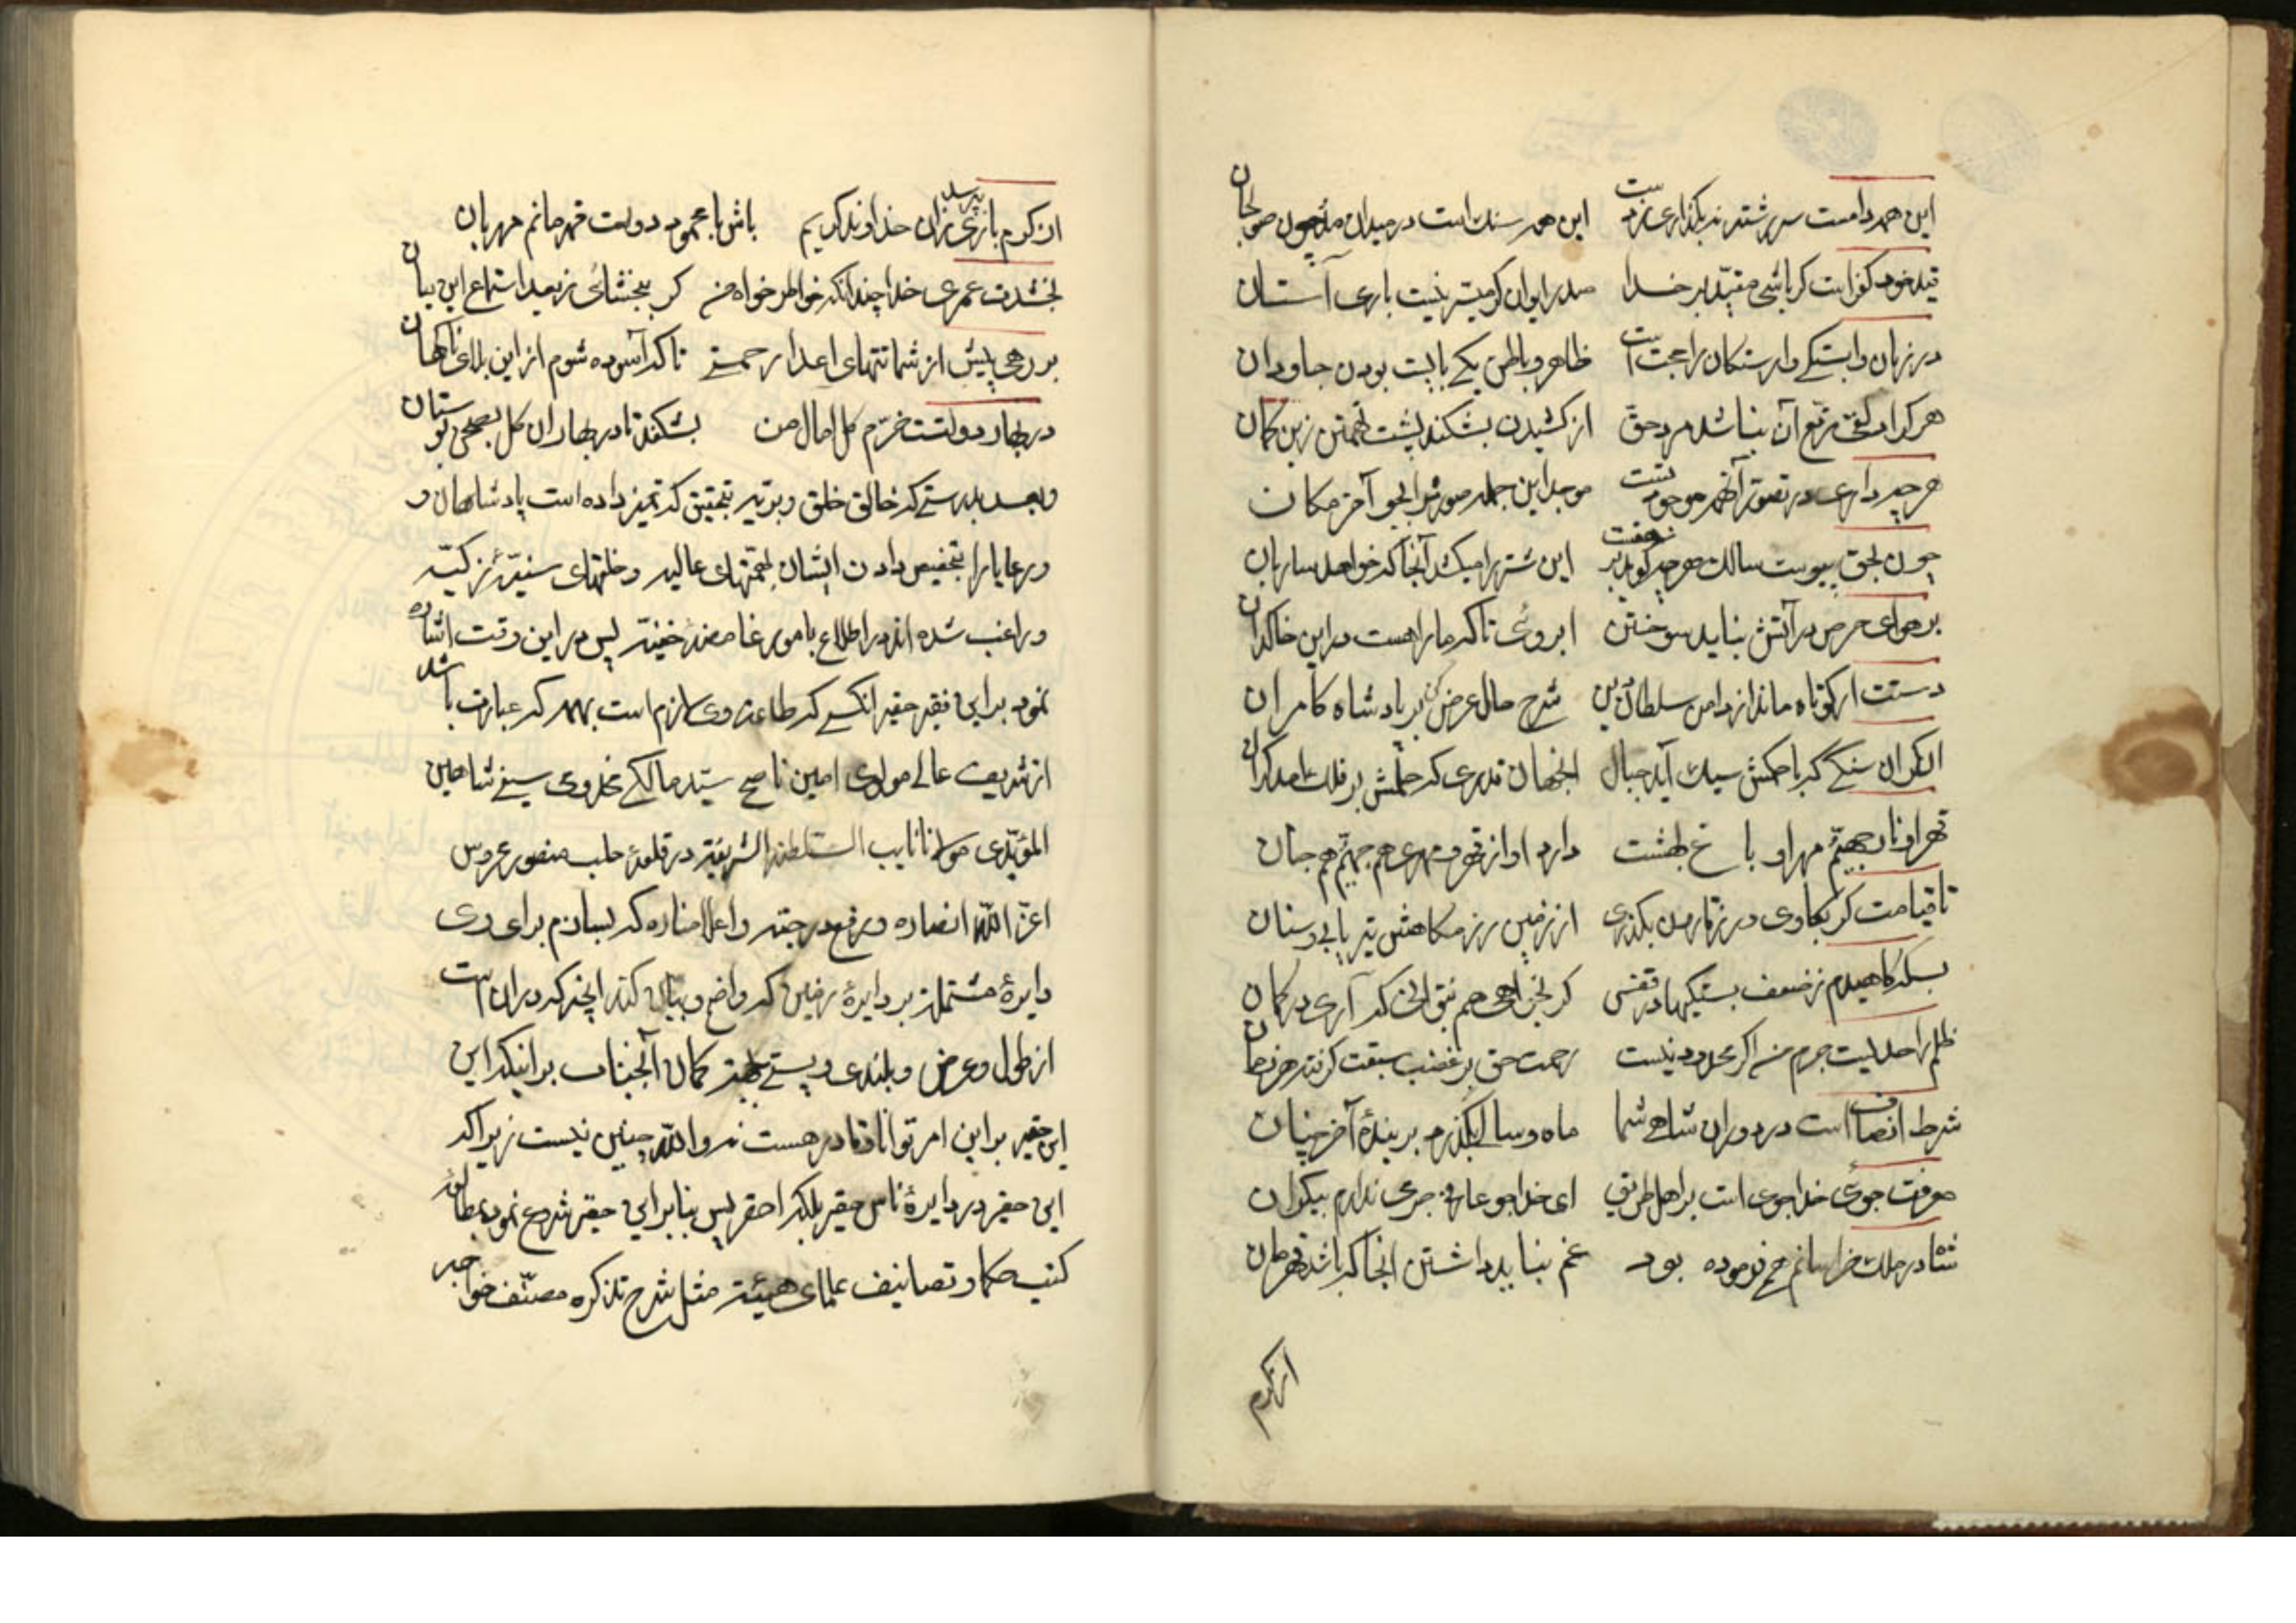 این همه دامست سررشته ند بگذاری ز دست این همه سنك است در میدان مدو چون صولجان
قید خود کفر است کر باشی مقید بر خدا صدر ایوان کر میسر نیست باری آستان
در زبان وابستکی وارستکان را حجت است ظاهر و باطن یکی بایست بودن جاودان
هر کرا دعوی نباشد مرد حق از کشیدن بشکند پشت تهمتن زین کمان
هر چه داری در تصور آنهم موجود تست موجد این جمله صورتها بجو آخر مکان
چون بحق پیوست سالك هر چه کوید بر نهفت این شتر را میکشد آنجا که خواهد ساربان
بر هوای حرص در آتش نباید سوختن ابروئی تا که ما را هست در این خاکدان
دستت ار کوتاه ماند از دامن سلطان دین شرح حال عرض کن بر پادشاه کامران
آن کران سنکی که با حکمش سبك آید جبال آنجهان قدری که حلمش بر فلك آمد کران
قهر او نار جهنم مهر او باغ بهشت دارد او از قهر و مهری هم جهنم هم جنان
تا قیامت کر بکاوی در زمین بکذری از زمین رزمکاهش تیر یابی و سنان
بسکه کاهیدم ز ضعف بستکیها در قفس کر بخواهی هم نتوانی که آری در کمان
ظلم را حد لیست جرم من اکر محدود نیست رحمت حق بر غضب سبقت کرفته هر زمان
شرط انصاف است در دوران شاهی شما ماه و سالی بکذرد بر بندهٔ آخر چنان
معرفت جوی خدا جوی است بر اهل طریق ای خدا جو عارفی جرمی ندارم بیکران
شاه در ملك خراسانم چو فرموده بود غم نباید داشتن آنجا که باشد قهرمان
از کرم
از کرم بازی بپرسد زان خداوند کریم باش با محمود دولت قهرمانم مهربان
بخشدت عمری خدا چندانکه خواطر خواه من کر ببخشائی ز بعد استماع این بیان
بر رهی پیش از شماتتهای اعدا رحمتی تا که آسوده شوم از این بلای ناکهان
در بهار دولتت خرم کل امال من بشکفد تا در بهاران کل بصحن بوستان
و بعد بدرستی که خالق خلق و بریه بتحقیق که تمیز داده است پادشاهان و
و رعایا را بتخفیص دادن ایشان بهمتهای عالیه و خلقهای سنیّهٔ زکیّه
و راغب شده اند در اطلاع بامور غامضهٔ خفیّه پس در این وقت اشاره
نمود بر این فقیر حقیر انکسی که طاعت وی لازم است بهمه که عبارت باشد
از شریف عالی مولوی امین ناصح سیّد مالکی مخدومی سیفی شاهین
المؤیّدی مولانا نایب السّلطنه الشریفه در قلعهٔ حلب منصور محروس
اعزّ اللّه انصاره و رفع درجته و اعلا مناره که بسازم برای وی
دایرهٔ مشتمله بر دایرهٔ زمین که واضح و بیان کند انچه که در ان است
از طول و عرض و بلندی و پستی بجهة کمان آنجناب بر اینکه این
این حقیر بر این امر توانا و قادر هست نه واللّه چنین نیست زیرا که
این حقیر در دایرهٔ ناس حقیر بلکه احقر پس بنابر این حقیر شروع نمود بمطالعهٔ
کتب حکما و تصانیف علمای هیئت مثل شرح تذکره مصنّف خواجه